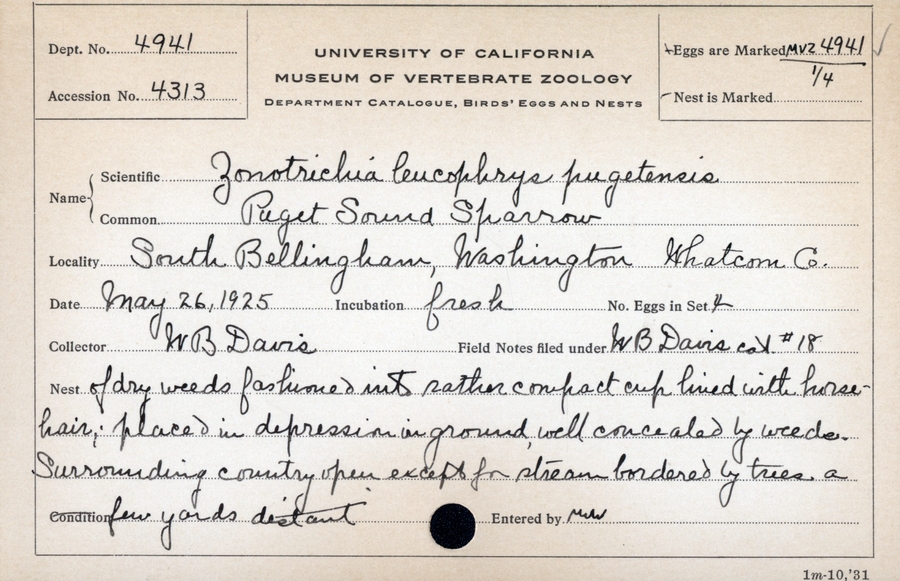 Dept. No. 4941
Accession No. 4313
UNIVERSITY OF CALIFORNIA
MUSEUM OF VERTEBRATE ZOOLOGY
DEPARTMENT CATALOGUE, BIRDS' EGGS AND NESTS
Eggs are Marked MVZ 4941 ✓
1/4
Nest is Marked
Name
Scientific Zonotrichia leucophrys pugetensis
Common Puget Sound Sparrow
Locality South Bellingham, Washington Whatcom Co.
Date May 26, 1925 Incubation fresh No. Eggs in Set 4
Collector W B Davis Field Notes filed under W B Davis col. #18
Nest of dry weeds fashioned into rather compact cup lined with horse-
hair; placed in depression in ground, well concealed by weeds.
Surrounding country open except for stream bordered by trees a
Condition few yards distant. Entered by
1m-10,'31